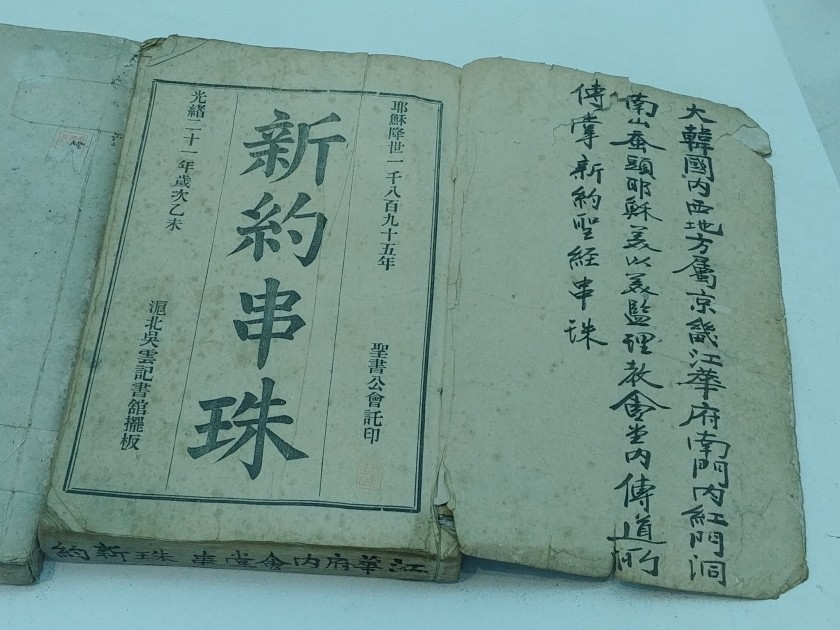 大韓國內西地方屬京畿江華府南門內紅門洞
南山蚕頭耶穌美以美監理教會堂內傳道所
傳掌新約聖经串珠
耶穌降世一千八百九十五年
聖書公會託印
新約串珠
光緒二十一年歲次乙未
滬北吳雲記書館擺板
江華府內會堂串珠新約